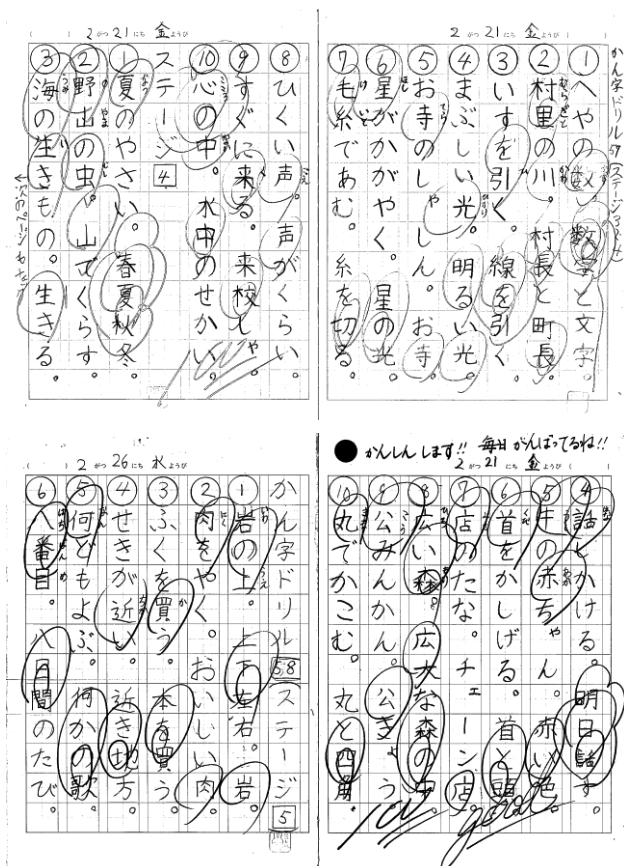 2がつ21にち金ようび
かん字ドリル57(ステージ3
①へやの数。数字と文字。
②村里の川。村長と町長。
③いすを引く。線を引く
④まぶしい光。明るい光。
⑤お寺のしゃしん。お寺
⑥星がかがやく。星の光。
⑦毛糸であむ。糸を切る。
2がつ21にち金ようび
⑧ひくい声。声がくらい。
⑨すぐに来る。来校しゃ。
⑩心の中。水中のせかい。
ステージ4
①夏のやさい。春夏秋冬。
②野山の虫。山でくらす。
③海の生きもの。生きる。
かんしんします!! 毎日がんばってるね!!
2がつ21にち金ようび
④話しかける。明日話す。
⑤牛の赤ちゃん。赤い色。
⑥首をかしげる。首と頭
⑦店のたな。チェーン店。
⑧広い森。広大な森の中
⑨公みんかん。公きょう
⑩丸でかこむ。丸と四角。
good
2がつ26にち水ようび
かん字ドリル58ステージ5
①岩の上。上下左右。岩。
②肉をやく。おいしい肉
③ふくを買う。本を買う
④せきが近い。近き地方。
⑤何どもよぶ。何かの歌
⑥八番目。八日間のたび。